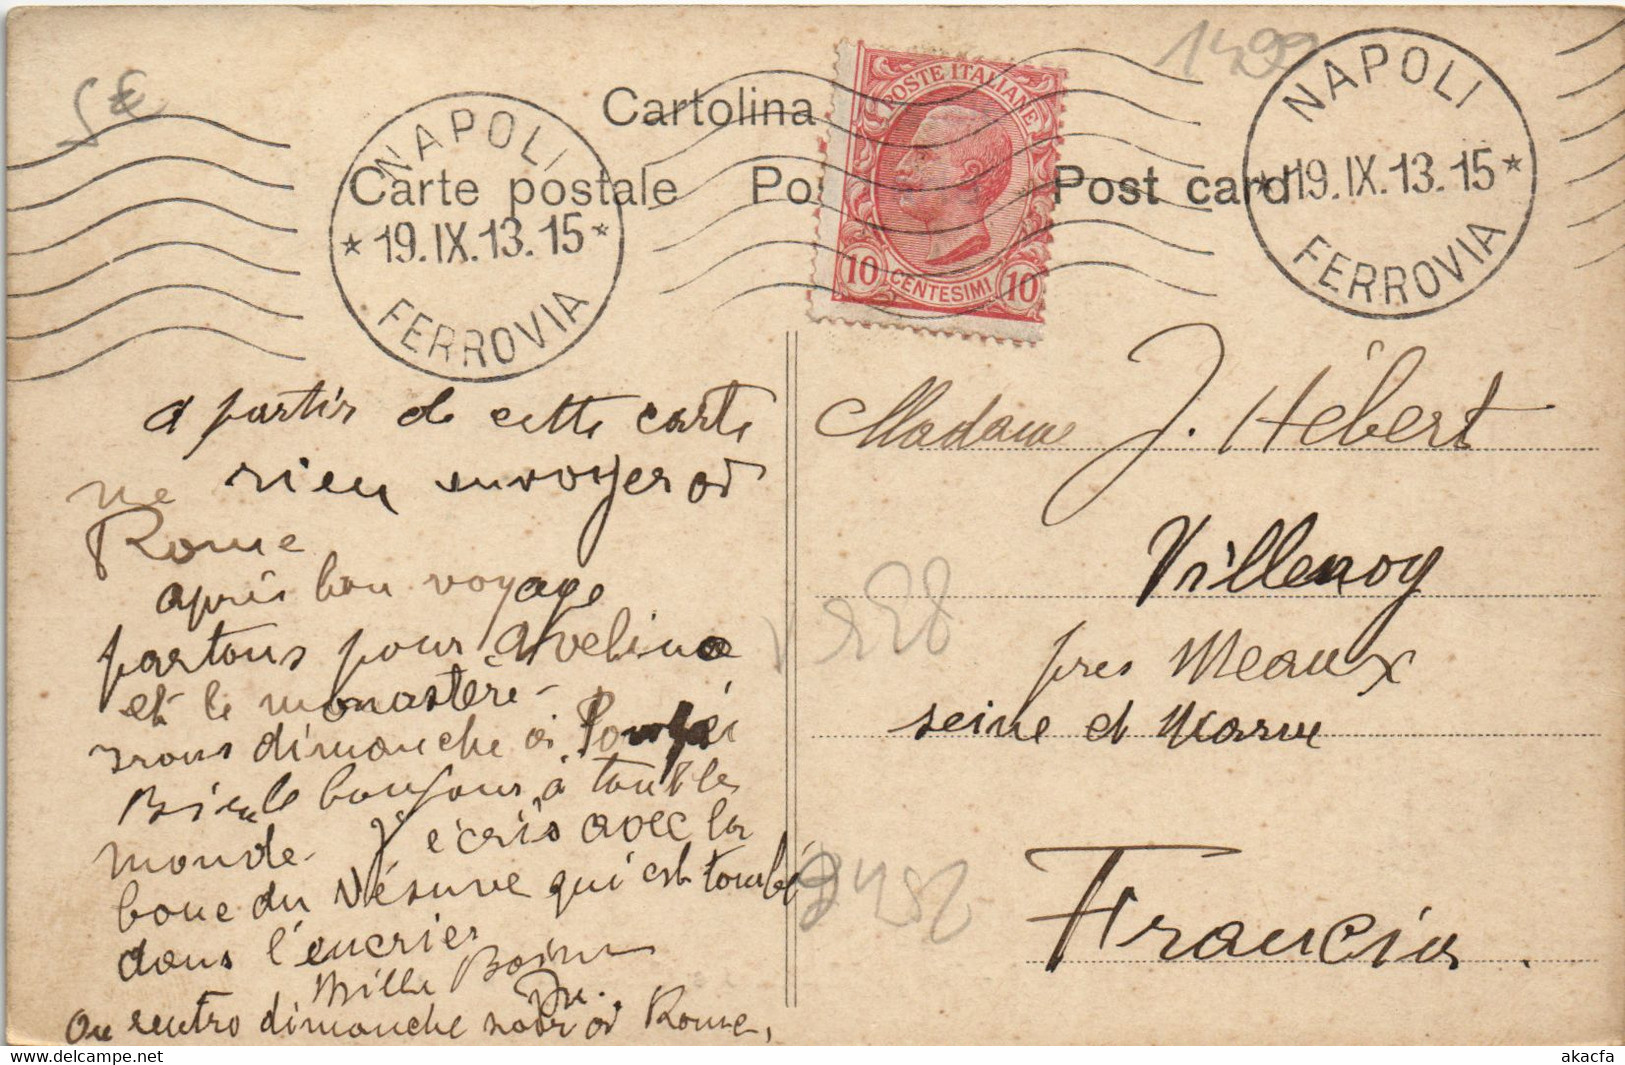 5€
1499
Cartolina
Carte postale Po Post card
NAPOLI
* 19.IX.13.15 *
FERROVIA
POSTE ITALIANE
10 CENTESIMI 10
NAPOLI
* 19.IX.13.15 *
FERROVIA
a partir de cette carte
ne rien envoyer à
Rome
après bon voyage
partons pour Avelino
et le monastère -
irons dimanche à Pompéi
Bien le bonjour à tout le
monde - J'écris avec la
boue du Vésuve qui est tombé
dans l'encrier
Mille
On rentre dimanche soir à Rome,
Madame J. Hébert
Villenoy
pres Meaux
seine et Marne
Francia.
akacfa